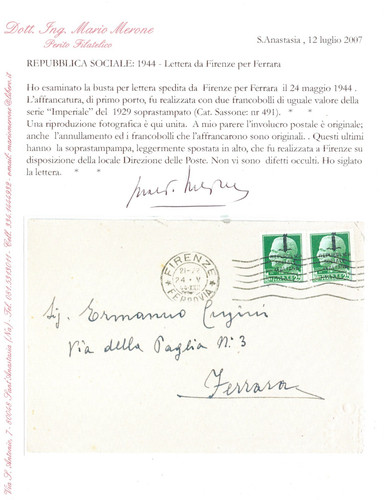 Dott. Ing. Mario Merone
Perito Filatelico
S.Anastasia , 12 luglio 2007
REPUBBLICA SOCIALE: 1944 - Lettera da Firenze per Ferrara
Ho esaminato la busta per lettera spedita da Firenze per Ferrara il 24 maggio 1944 .
L'affrancatura, di primo porto, fu realizzata con due francobolli di uguale valore della
serie "Imperiale" del 1929 soprastampato (Cat. Sassone: nr 491). " "
Una riproduzione fotografica è qui unita. A mio parere l'involucro postale è originale;
anche l'annullamento ed i francobolli che l'affrancarono sono originali . Questi ultimi
hanno la soprastampampa, leggermente spostata in alto, che fu realizzata a Firenze su
disposizione della locale Direzione delle Poste. Non vi sono difetti occulti. Ho siglato
la lettera. " "
FIRENZE
24 · V
FERROVIA
Sig. Ermanno
Via della Paglia N. 3
Ferrara
Via S. Antonio, 7 - 80048 Sant'Anastasia (Na)